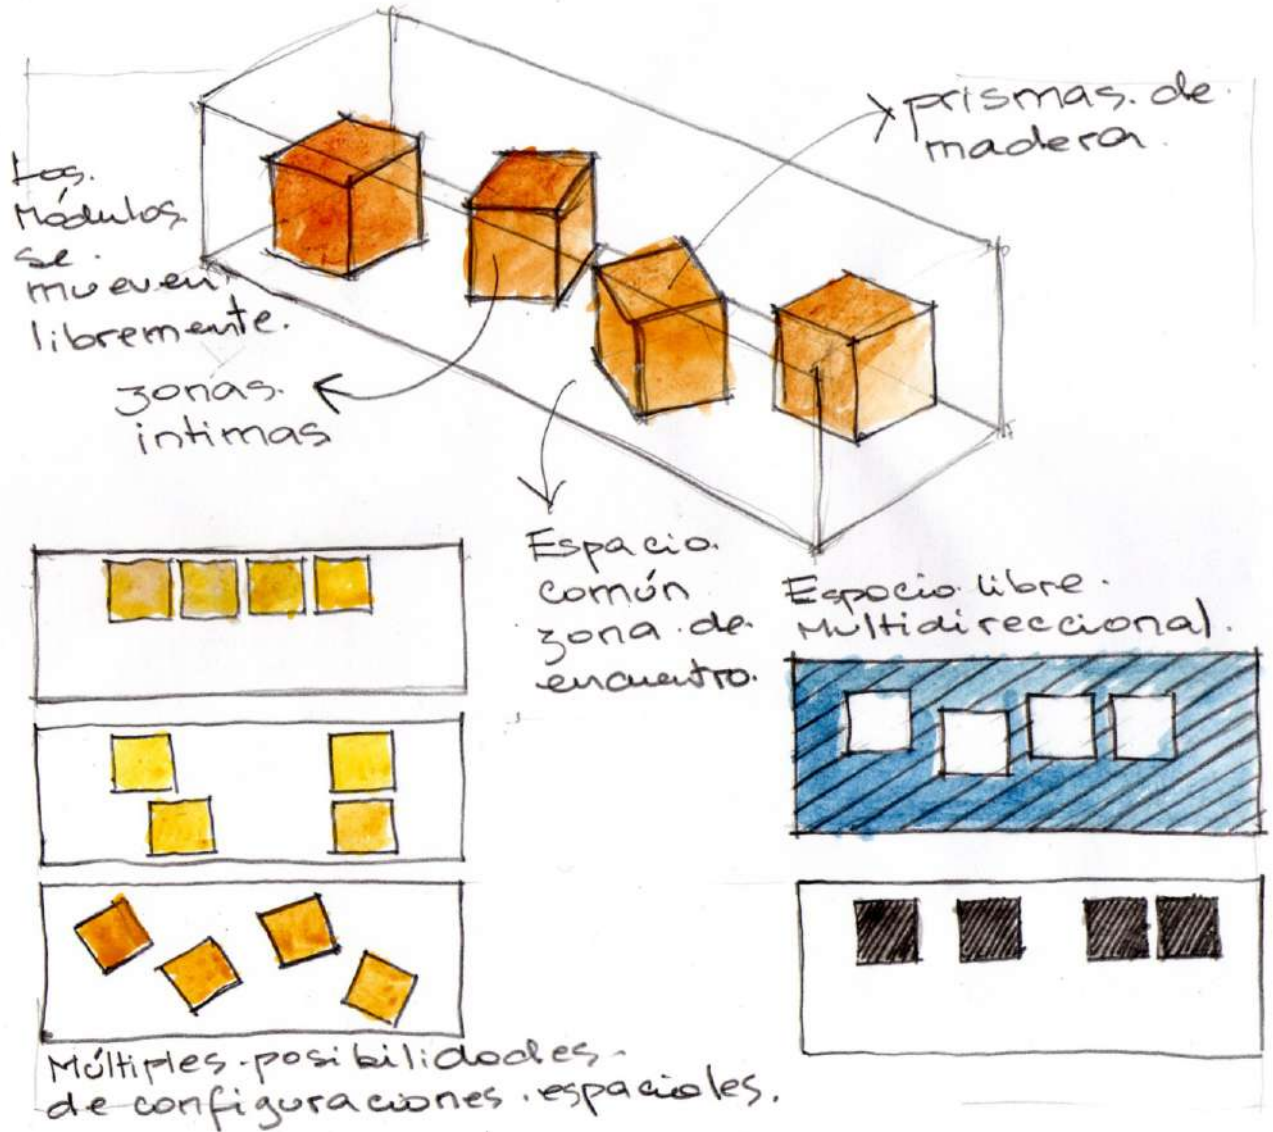 prismas. de.
madera.
Los.
Módulos.
se.
mueven
libremente.
zonas.
intimas
Espacio.
común
zona. de.
encuentro.
Espacio. libre.
Multidireccional.
Múltiples. posibilidades.
de configuraciones. espaciales.